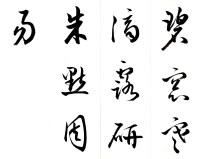 碧窗寒
滴露研
朱點周
易